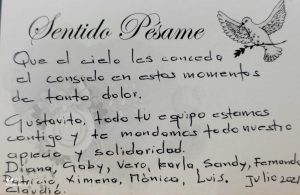 Sentido Pésame
Que el cielo les conceda
el consuelo en estos momentos
de tanto dolor.
Gustavito, todo tu equipo estamos
contigo y te mandamos todo nuestro
aprecio y solidaridad.
Diana, Gaby, Vero, Karla, Sandy, Fernando
Patricio, Ximena, Mónica, Luis. Julio 202
Claudio.